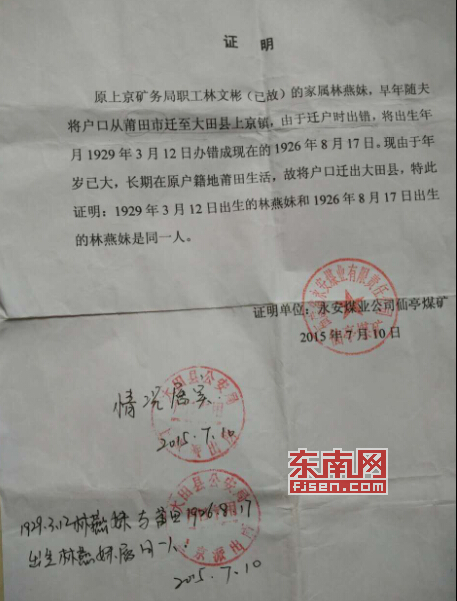 证 明
原上京矿务局职工林文彬（已故）的家属林燕妹，早年随夫
将户口从莆田市迁至大田县上京镇，由于迁户时出错，将出生年
月 1929 年 3 月 12 日办错成现在的 1926 年 8 月 17 日。现由于年
岁已大，长期在原户籍地莆田生活，故将户口迁出大田县，特此
证明：1929 年 3 月 12 日出生的林燕妹和 1926 年 8 月 17 日出生
的林燕妹是同一人。
证明单位：永安煤业公司仙亭煤矿
2015 年 7 月 10 日
情况属实
大田县公安局
2015.7.10
东南网
fjsen.com
大田县公安局
1929.3.12林燕妹与莆田1926.8.17
出生林燕妹属同一人
2015.7.10